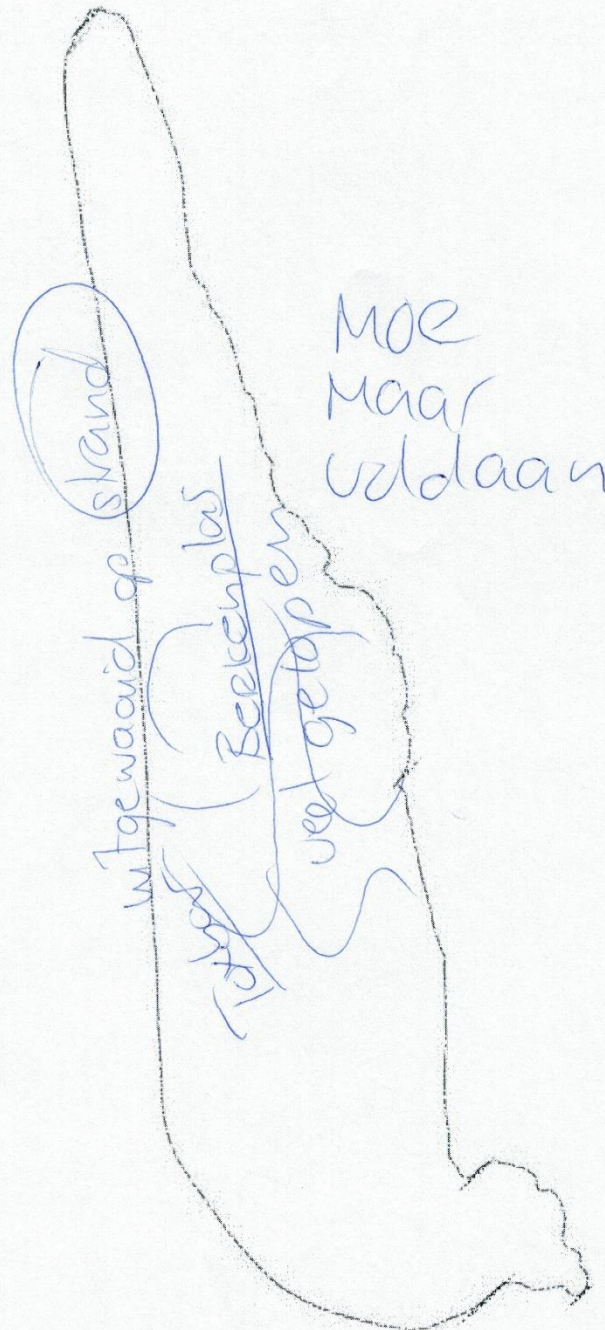 uitgewaaid op strand
Berkenplas
veel gelopen
Moe
Maar
voldaan